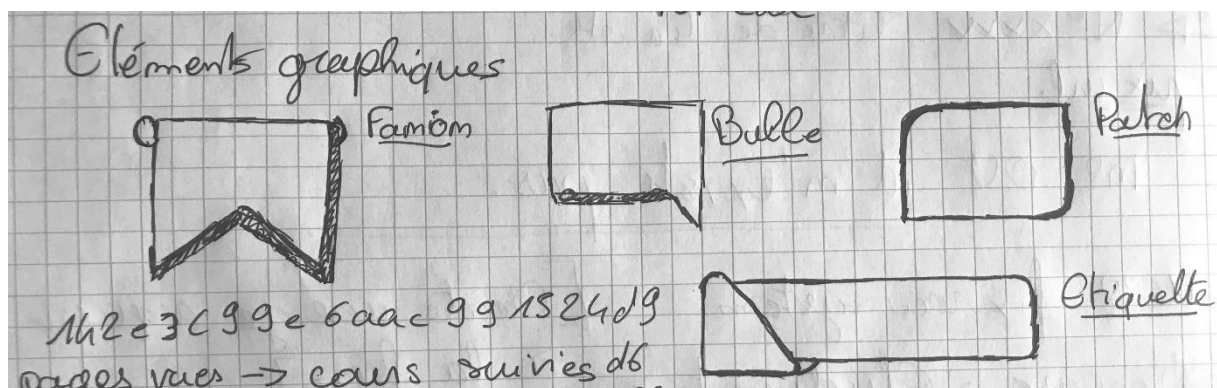 Eléments graphiques
Famion
Bulle
Patch
Etiquette
142e3c99e6aac991524d9
pages vues → cours suivies d6